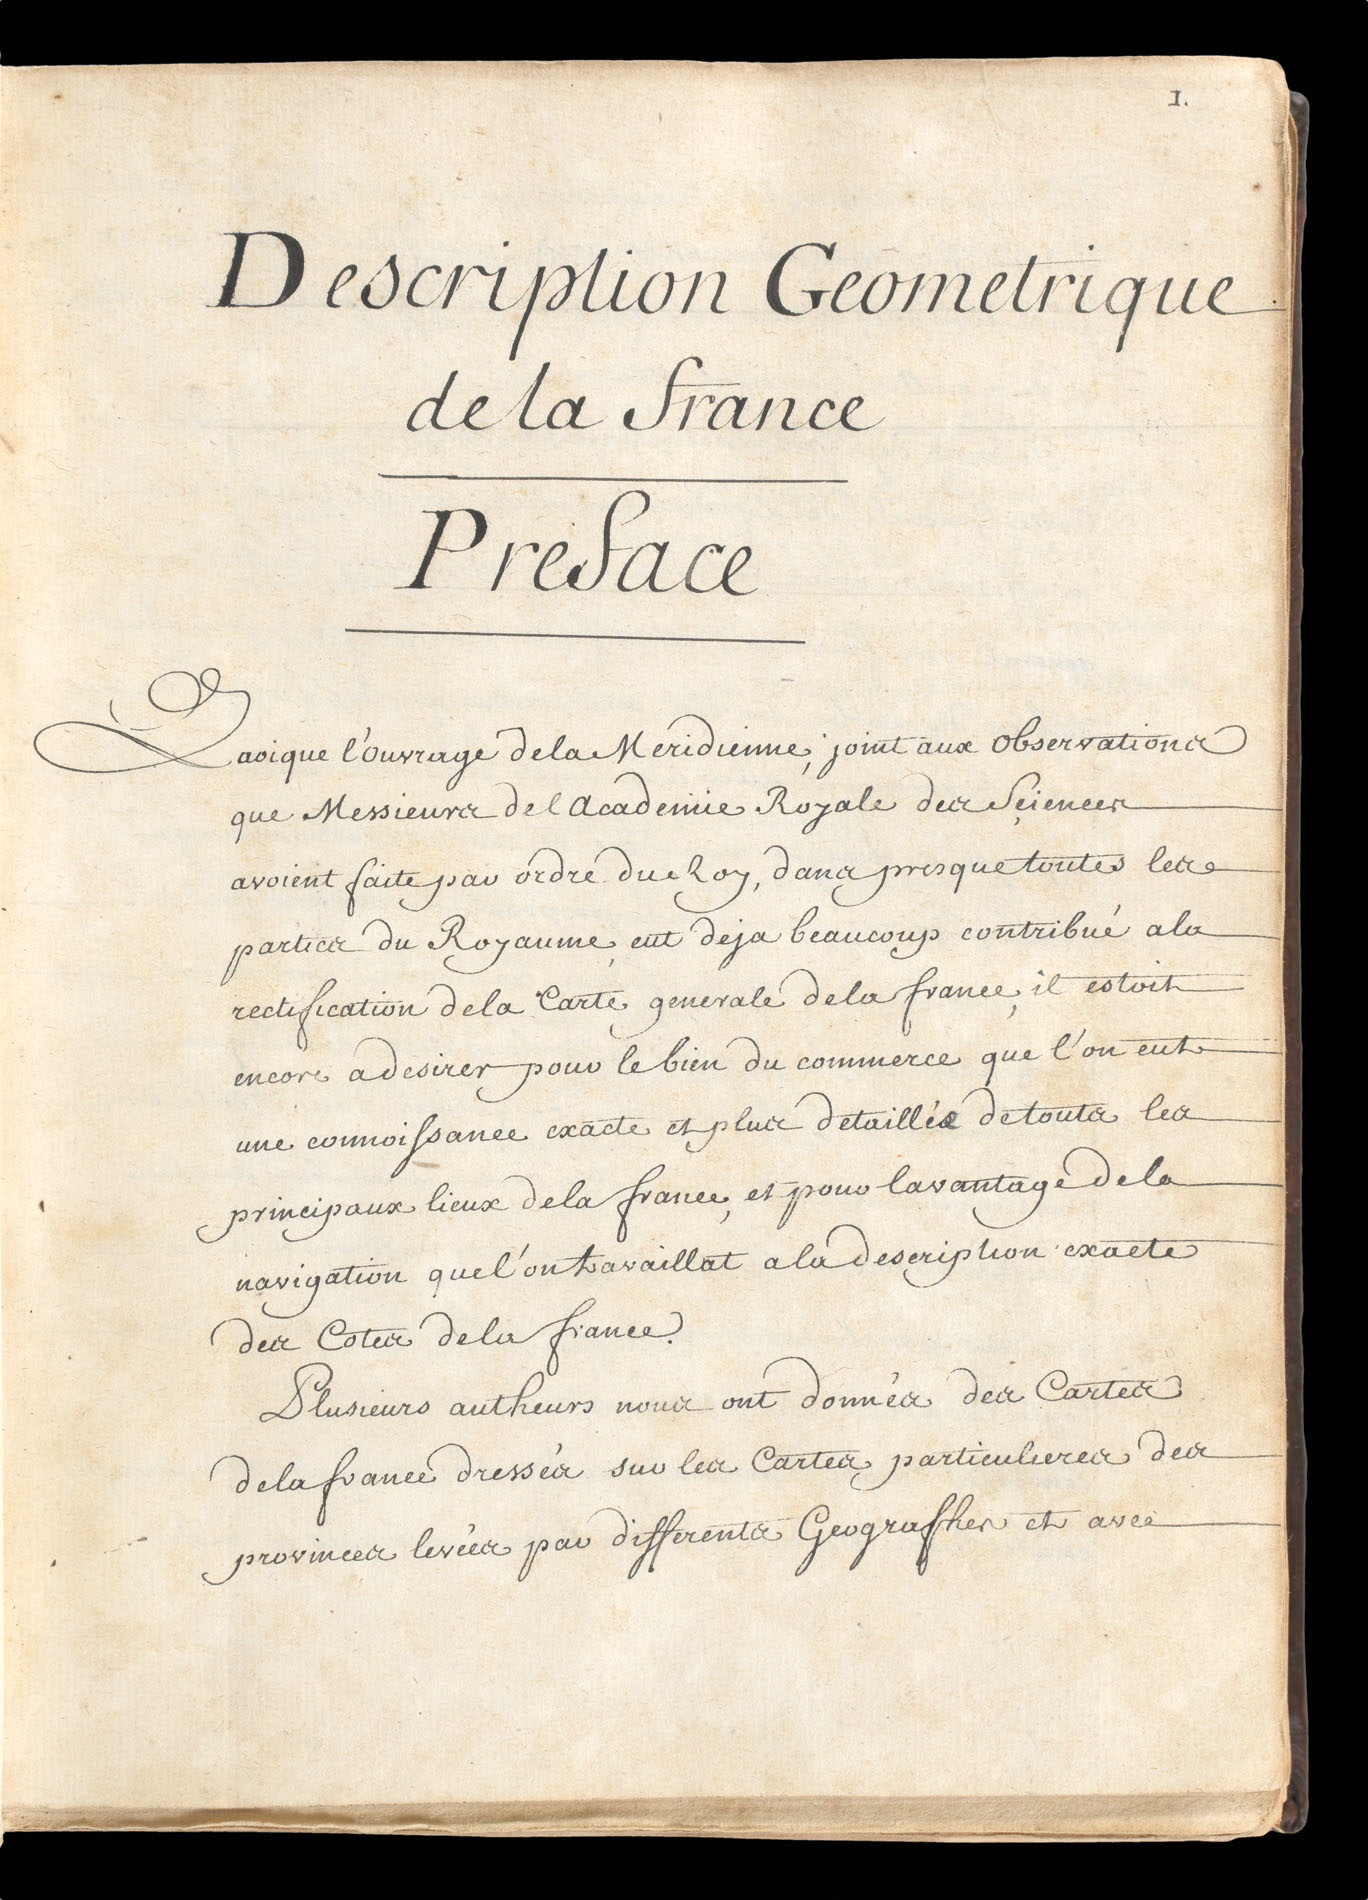 1.
Description Geometrique
de la france
Preface
Quoique l'ouvrage de la Méridienne, joint aux observations
que Messieurs de l Academie Royale des Sciences
avoient faite par ordre du Roy, dans presque toutes les
parties du Royaume, eut deja beaucoup contribué a la
rectification de la Carte generale de la france, il estoit
encore a desirer pour le bien du commerce que l'on eut
une connoissance exacte et plus detaillée de touts les
principaux lieux de la france, et pour lavantage de la
navigation que l'on travaillat a la description exacte
des Cotes de la france.
Plusieurs autheurs nous ont donnés des Cartes
de la france dressés sur les Cartes particulieres des
provinces levées par differents Geographes et avec